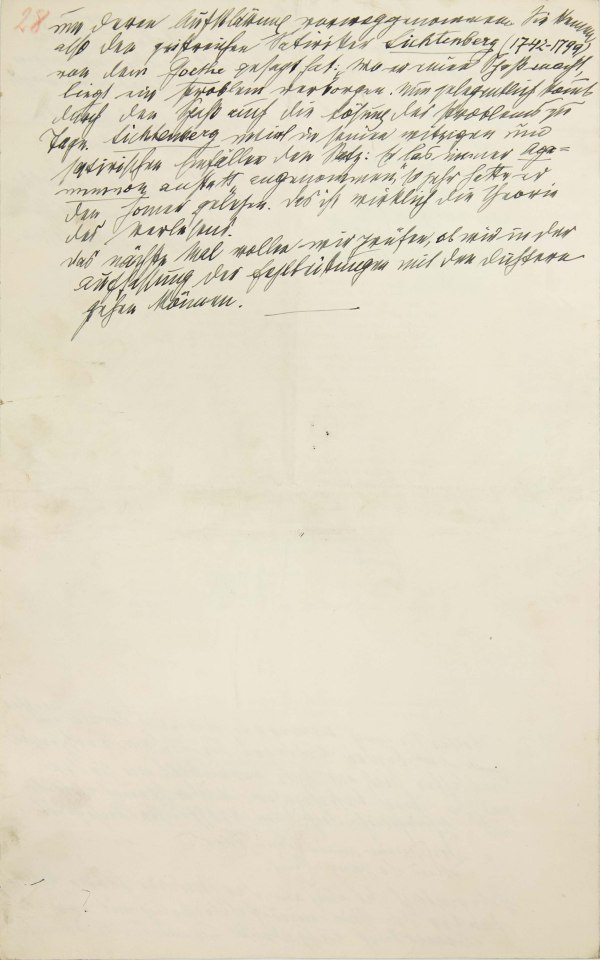 28 und deren Aufklärung vorweggenommen. Sie kennen
alle den geistreichen Satiriker Lichtenberg (1742-1799)
von dem Goethe gesagt hat: Wo er einen Spaß macht,
liegt ein Problem verborgen. Nun gelegentlich kommt
durch den Spaß auch die Lösung des Problems zu
Tage. Lichtenberg in seinen witzigen und
satirischen Einfällen den Satz: Er las immer Aga=
memnon anstatt angenommen, so sehr hatte er
den Homer gelesen. Das ist wirklich die Theorie
des Verlesens.
Das nächste Mal wollen wir prüfen, ob wir in der
Auffassung der Fehlleistungen mit den Dichtern
gehen können.